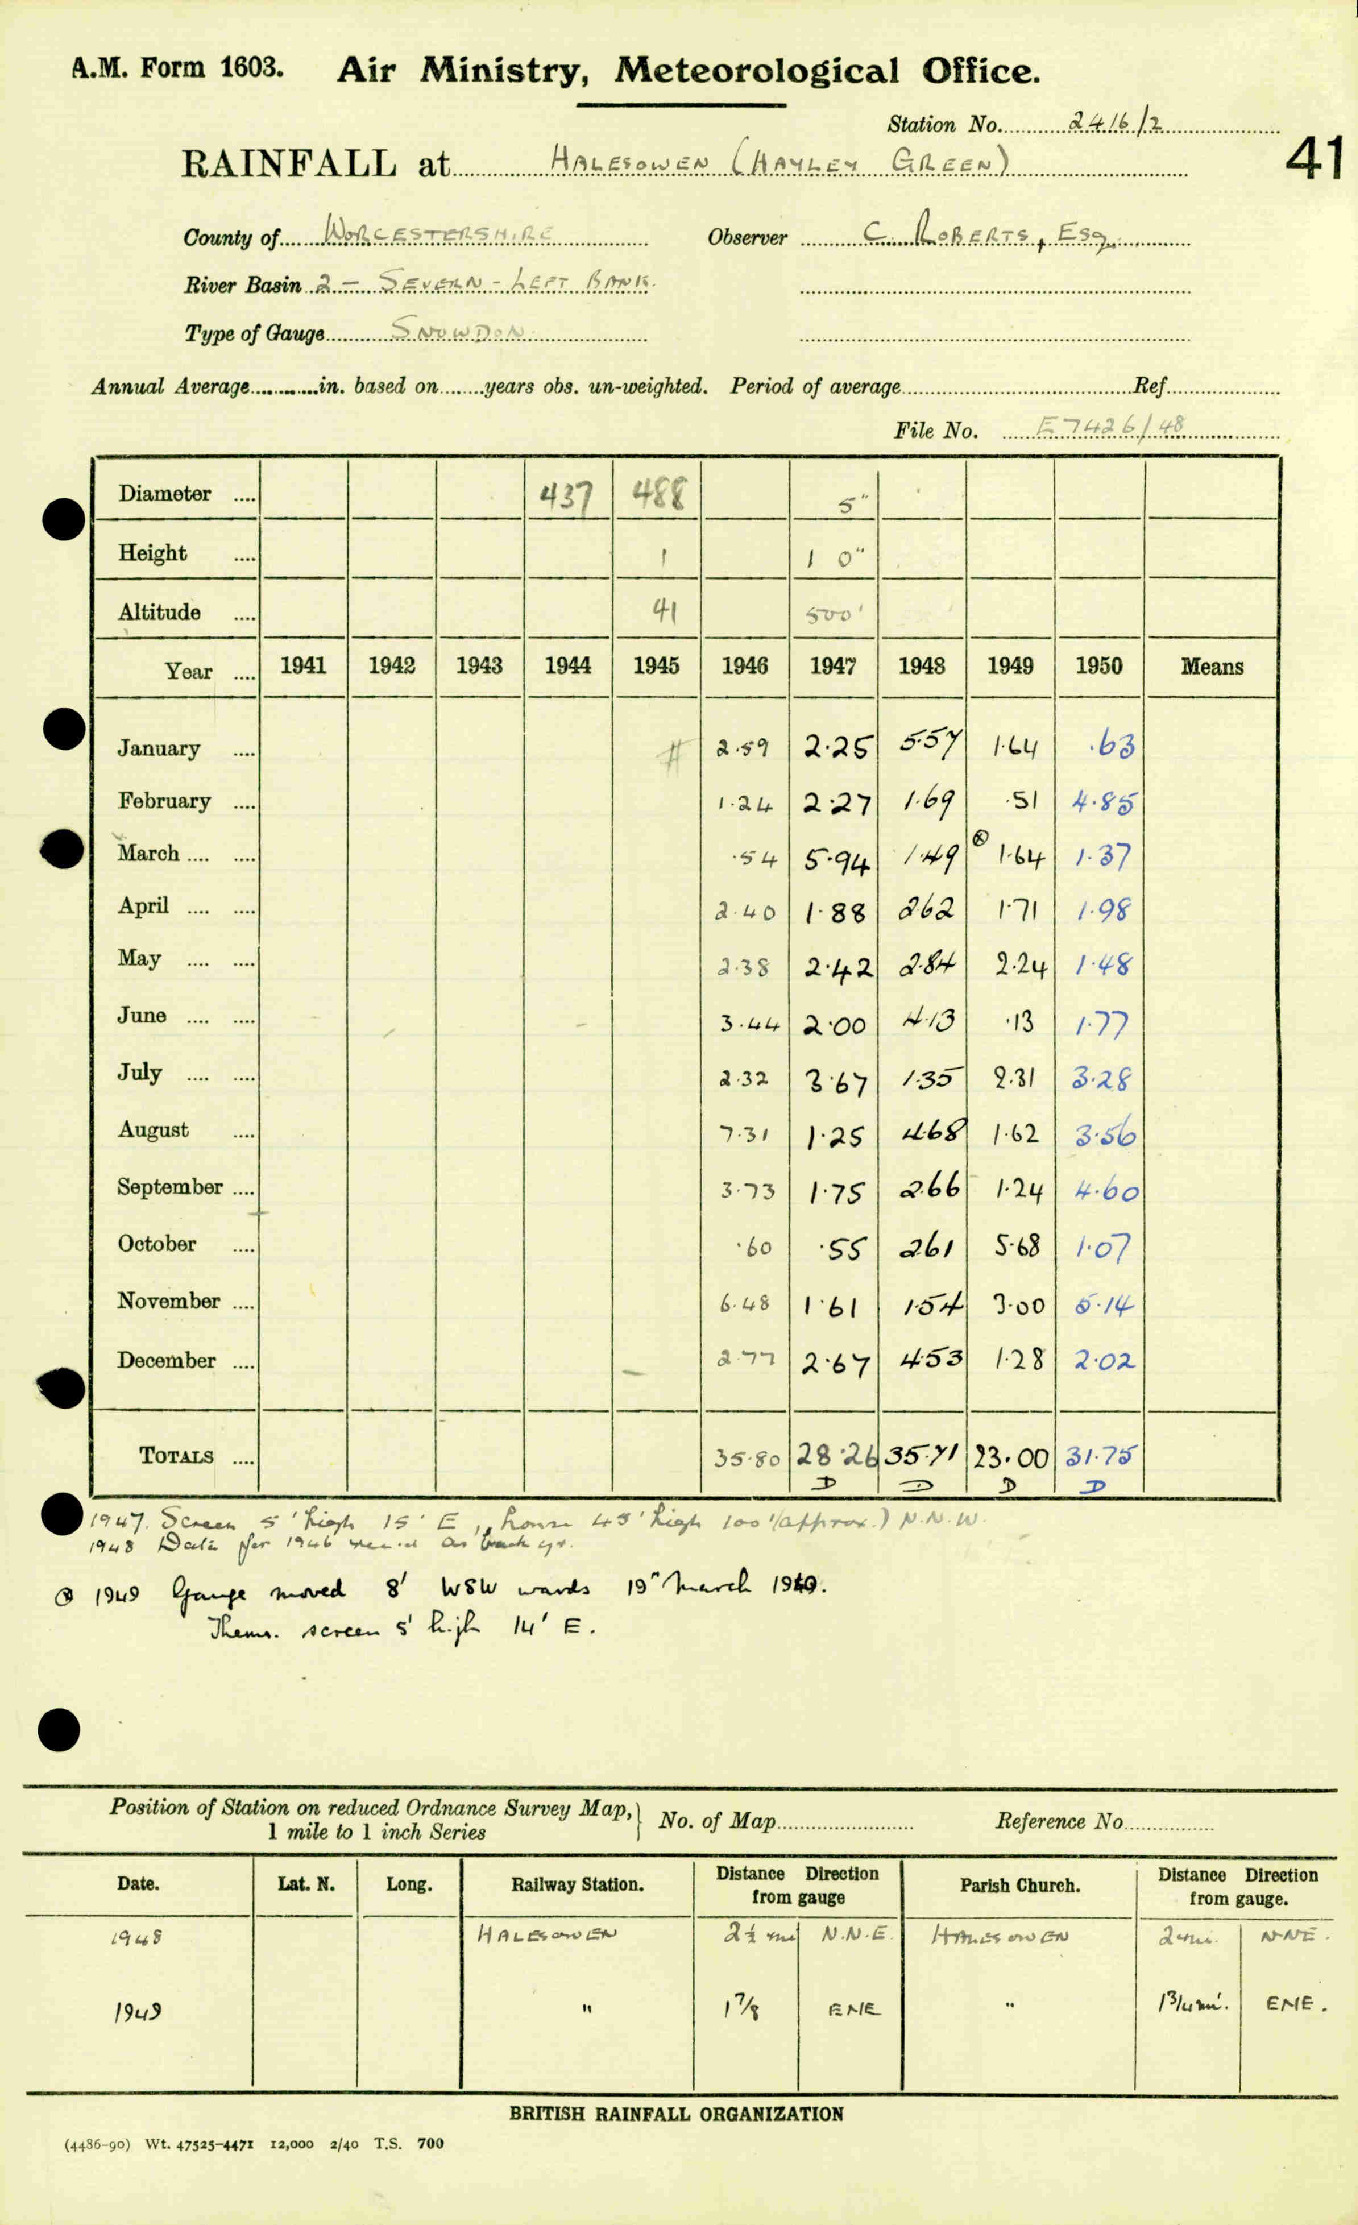 A.M. Form 1603. Air Ministry, Meteorological Office.
Station No. 2416/2
41
RAINFALL at HALESOWEN (HAYLEY GREEN)
County of WORCESTERSHIRE Observer C. ROBERTS, ESQ.
River Basin 2 - SEVERN - LEFT BANK.
Type of Gauge SNOWDON
Annual Average............in. based on.......years obs. un-weighted. Period of average........Ref........
File No. E7426/48
Diameter .... 437 488 5"
Height .... 1 1 0"
Altitude .... 41 500'
Year .... 1941 1942 1943 1944 1945 1946 1947 1948 1949 1950 Means
January .... # 2.59 2.25 5.57 1.64 .63
February .... 1.24 2.27 1.69 .51 4.85
March .... .... .54 5.94 1.49 ⊗ 1.64 1.37
April .... .... 2.40 1.88 262 1.71 1.98
May .... .... 2.38 2.42 2.84 2.24 1.48
June .... .... 3.44 2.00 4.13 .13 1.77
July .... .... 2.32 3.67 1.35 2.31 3.28
August .... 7.31 1.25 468 1.62 3.56
September .... 3.73 1.75 266 1.24 4.60
October .... .60 .55 261 5.68 1.07
November .... 6.48 1.61 154 3.00 5.14
December .... 2.77 2.67 453 1.28 2.02
TOTALS .... 35.80 28.26 35.71 23.00 31.75
D D D D
1947. Screen 5' high 15' E, house 45' high 100' (approx.) N.N.W.
1948 Data for 1946 as back yr.
⊗ 1949 Gauge moved 8' WSW wards 19th March 1949.
Therm. screen 5' high 14' E.
Position of Station on reduced Ordnance Survey Map, 1 mile to 1 inch Series } No. of Map........ Reference No........
Date. Lat. N. Long. Railway Station. Distance Direction from gauge Parish Church. Distance Direction from gauge.
1948 HALESOWEN 2½ mi N.N.E. HALESOWEN 2 mi. NNE.
1949 " 1⅞ ENE " 1¾ mi. ENE.
BRITISH RAINFALL ORGANIZATION
(4486-90) Wt. 47525-4471 12,000 2/40 T.S. 700